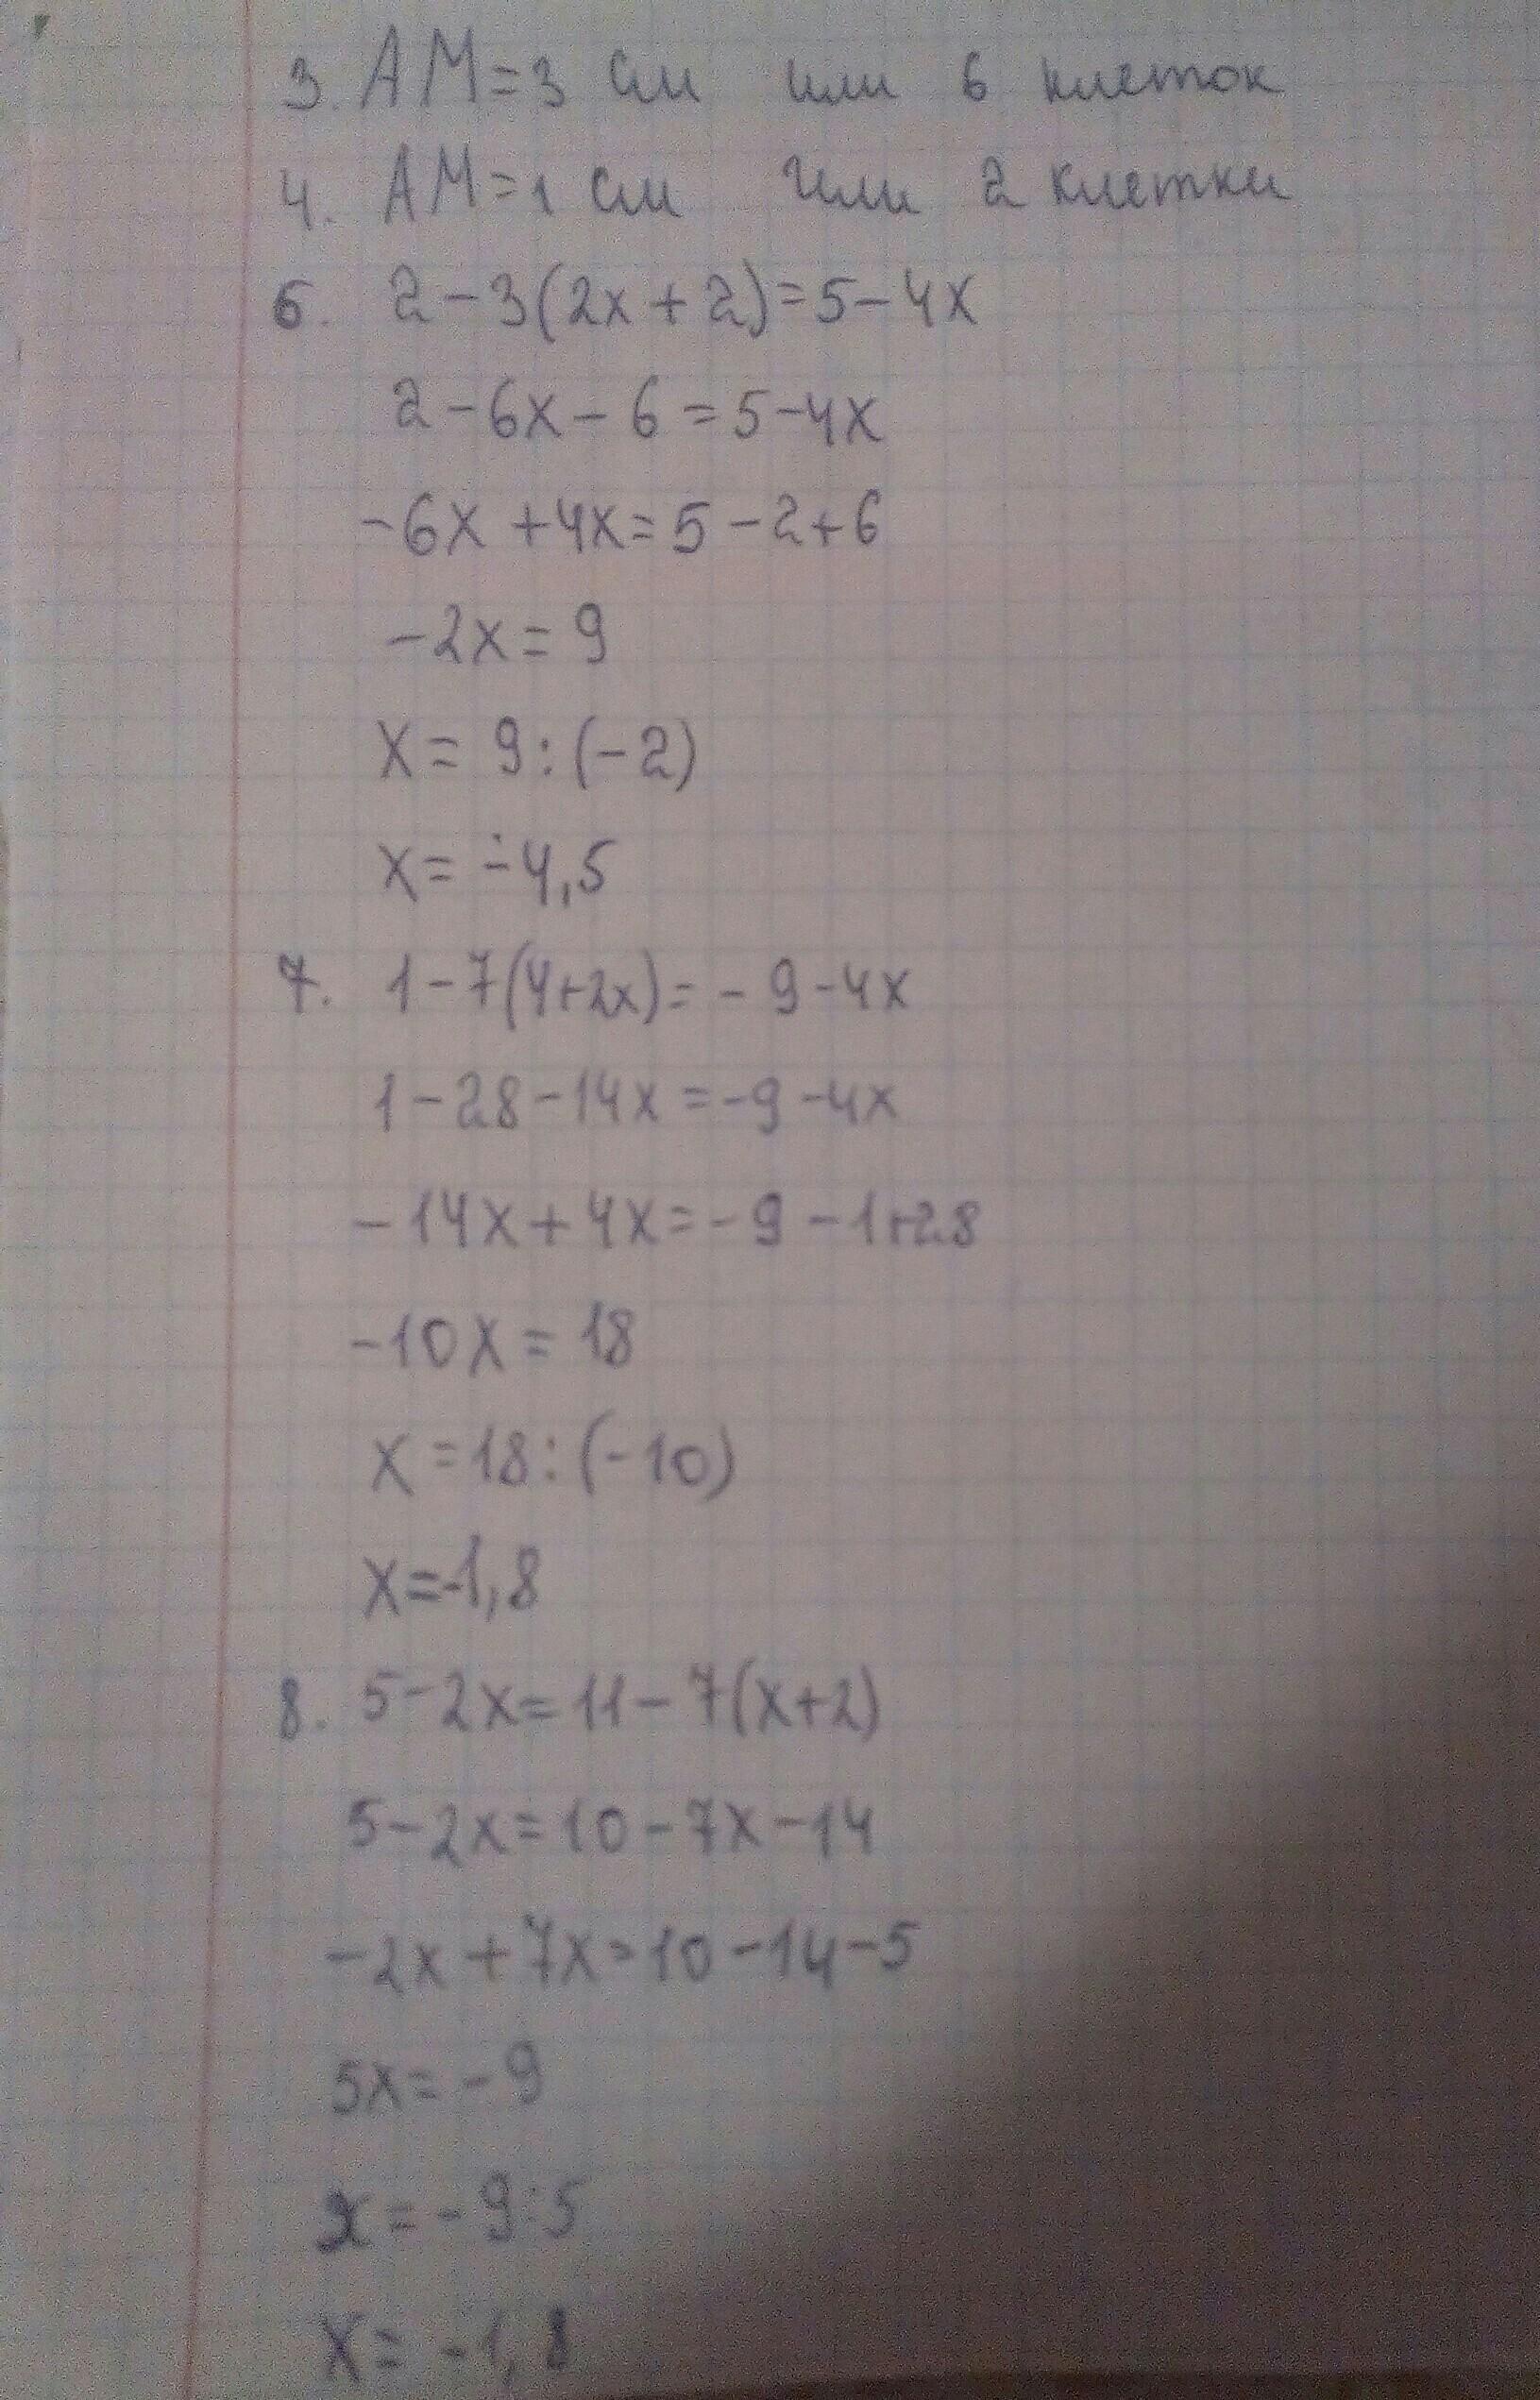 3. AM=3 см или 6 клеток
4. AM=1 см или 2 клетки
6. 2-3(2x+2)=5-4x
2-6x-6=5-4x
-6x+4x=5-2+6
-2x=9
x=9:(-2)
x=-4,5
7. 1-7(4+2x)=-9-4x
1-28-14x=-9-4x
-14x+4x=-9-1+28
-10x=18
x=18:(-10)
x=-1,8
8. 5-2x=11-7(x+2)
5-2x=10-7x-14
-2x+7x=10-14-5
5x=-9
x=-9:5
x=-1,8